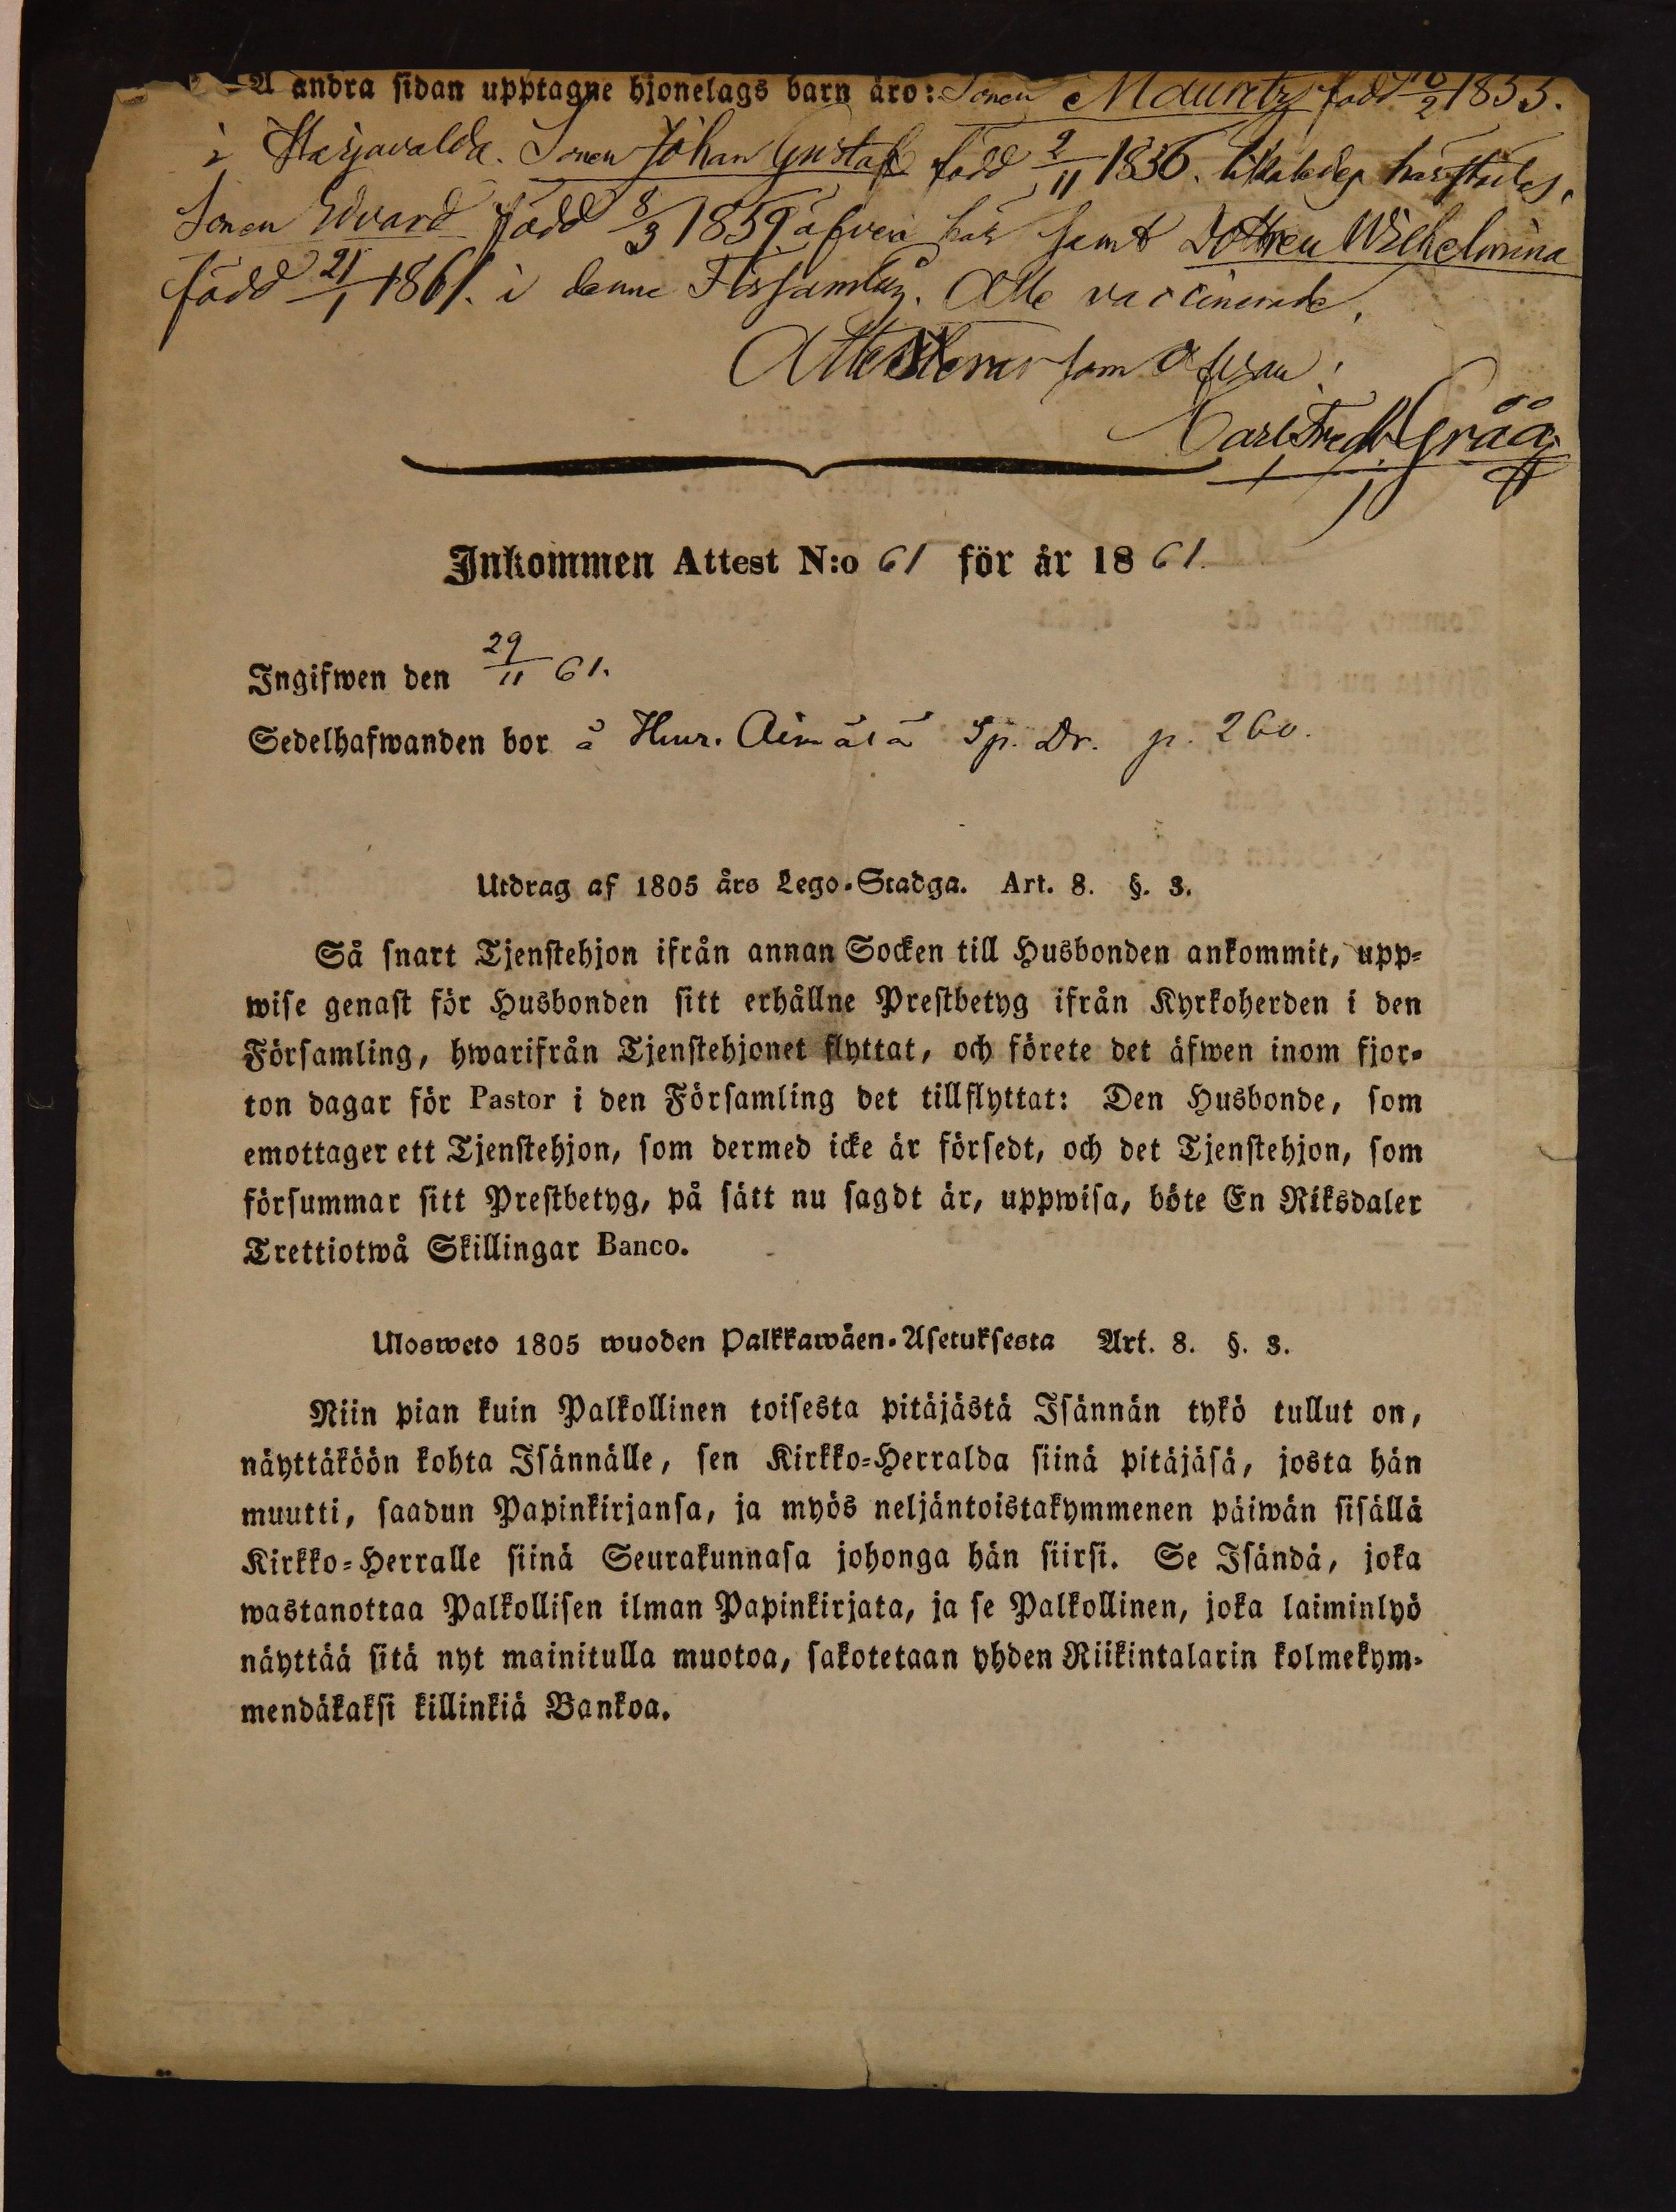 Å andra sidan upptagne hjonelags barn äro: Sonen Mauritz född /2 1853.
i Harjavalda. Sonen Johan Gustaf född 2/11 1856. härstädes,
Sonen Edvard född 8/3 1859 äfven här samt Dottren Wilhelmina
född 21/1 1861. i denna Församling. Alle vaccinerade,
Attesterar som ofvan:
Carl Fredr. Grååå
Inkommen Attest N:o 61 för år 1861.
Ingifwen den 29/11 61.
Sedelhafwanden bor å Huur. Aimälä Sp. Dr. p. 260.
Utdrag af 1805 års Lego-Stadga. Art. 8. §. 3.
Så snart Tjenstehjon ifrån annan Socken till Husbonden ankommit, upp-
wise genast för Husbonden sitt erhållne Prestbetyg ifrån Kyrkoherden i den
Församling, hwarifrån Tjenstehjonet flyttat, och förete det äfwen inom fjor-
ton dagar för Pastor i den Församling det tillflyttat: Den Husbonde, som
emottager ett Tjenstehjon, som dermed icke är försedt, och det Tjenstehjon, som
försummar sitt Prestbetyg, på sätt nu sagdt är, uppwisa, böte En Riksdaler
Trettiotwå Skillingar Banco.
Ulosweto 1805 wuoden Palkkawäen-Asetuksesta Art. 8. §. 3.
Niin pian kuin Palkollinen toisesta pitäjästä Isännän tykö tullut on,
näyttäköön kohta Isännälle, sen Kirkko-Herralda siinä pitäjäsä, josta hän
muutti, saadun Papinkirjansa, ja myös neljäntoistakymmenen päiwän sisällä
Kirkko-Herralle siinä Seurakunnasa johonga hän siirsi. Se Isändä, joka
wastanottaa Palkollisen ilman Papinkirjata, ja se Palkollinen, joka laiminlyö
näyttää sitä nyt mainitulla muotoa, sakotetaan yhden Riikintalarin kolmekym-
mendäkaksi killinkiä Bankoa.